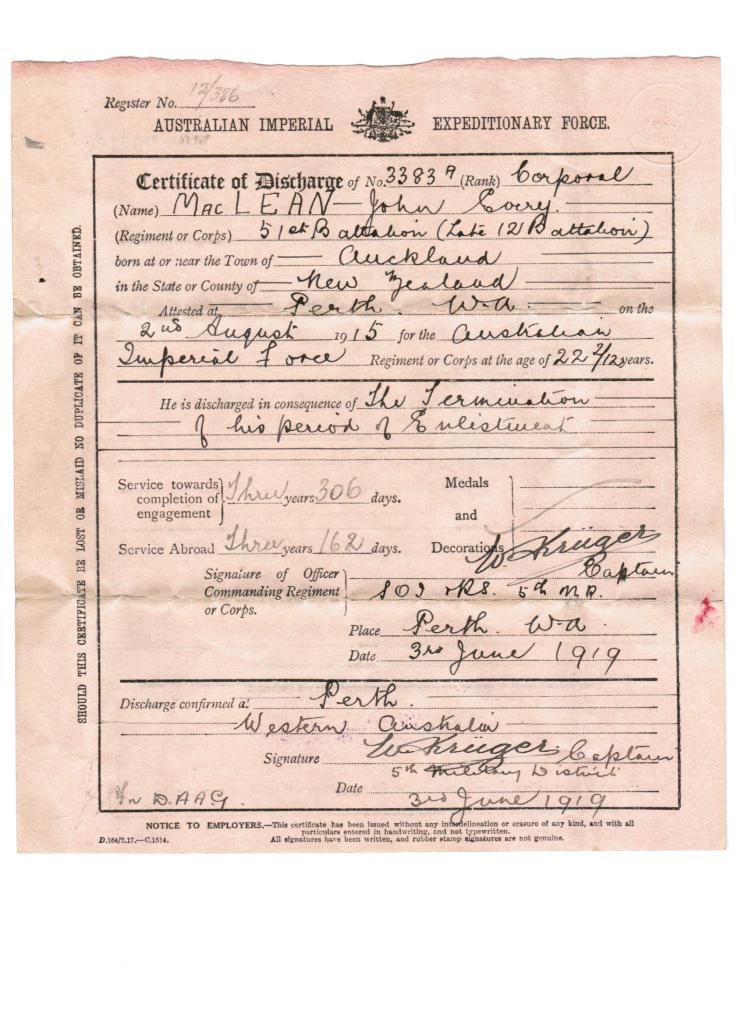 Register No. 12/386
AUSTRALIAN IMPERIAL EXPEDITIONARY FORCE.
Certificate of Discharge of No. 3383A (Rank) Corporal
(Name) MacLEAN John Every.
(Regiment or Corps) 51st Battalion (Late 12 Battalion)
born at or near the Town of Auckland
in the State or County of New Zealand
Attested at Perth. W.A. on the
2nd August 1915 for the Australian
Imperial Force Regiment or Corps at the age of 22 2/12 years.
He is discharged in consequence of The Termination
of his period of Enlistment
Service towards completion of engagement } Three years 306 days.
Service Abroad Three years 162 days.
Medals
and
Decorations
W Krüger
Captain
Signature of Officer
Commanding Regiment
or Corps.
5th M.D.
Place Perth. W.A.
Date 3rd June 1919
Discharge confirmed at Perth.
Western Australia
Signature W Krüger Captain
5th Military District
Date 3rd June 1919
For D.A.A.G.
NOTICE TO EMPLOYERS.—This certificate has been issued without any interdelineation or erasure of any kind, and with all
particulars entered in handwriting, and not typewritten.
All signatures have been written, and rubber stamp signatures are not genuine.
D.164/2.17.—C.1514.
SHOULD THIS CERTIFICATE BE LOST OR MISLAID NO DUPLICATE OF IT CAN BE OBTAINED.